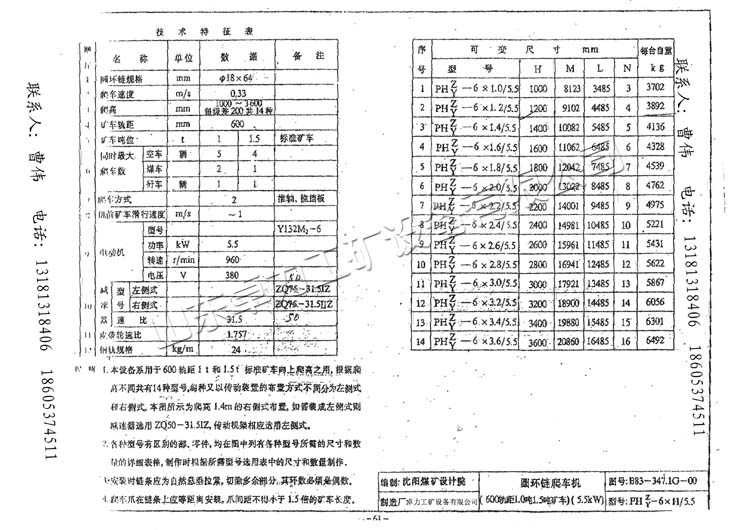 技 术 特 征 表
名 称 单位 数 据 备 注
圆环链规格 mm φ18×64
爬车速度 m/s 0.33
爬高 mm 1000 ~ 3600
每级差200共14种
矿车轨距 mm 600
矿车吨位 t 1 1.5 标准矿车
同时最大 空车 辆 5 4
爬车数 煤车 2 1
矸车 辆 1 1
爬车方式 2 推轴、推挡板
爬前矿车滑行速度 m/s ~1
电动机 型号 Y132M₂-6
功率 kW 5.5
转速 r/min 960
电压 V 380 50
减 型 左侧式 ZQ76-31.5IZ
速 号 右侧式 ZQ76-31.5IIZ
10 器 速 比 31.5 50
11 皮带轮速比 1.757
钢轨规格 kg/m 24
1. 本设备系用于600轨距1t和1.5t标准矿车向上爬高之用,根据爬
高不同共有14种型号,每种又以传动装置的布置方式不同分为左侧式
和右侧式,本图所示为爬高1.4m的右侧式布置,如需装成左侧式则
减速器选用ZQ50-31.5IZ,传动机架相应选用左侧式。
2. 各种型号有区别的部、零件,均在图中列有各种型号所需的尺寸和数
量的详细表格,制作时根据所需型号选用表中的尺寸和数量制作。
安装时链条应为自然悬垂拉紧,切除多余部分,其环数必须是偶数。
4. 爬车爪在链条上应等距离安装,爪间距不得小于1.5倍的矿车长度。
序 可 变 尺 寸 mm 每台自重
号 型 号 H M L N kg
1 PH Z/Y-6×1.0/5.5 1000 8123 3485 3 3702
2 PH Z/Y-6×1.2/5.5 1200 9102 4485 4 3892
3 PH Z/Y-6×1.4/5.5 1400 10082 5485 5 4136
4 PH Z/Y-6×1.6/5.5 1600 11062 6485 6 4328
5 PH Z/Y-6×1.8/5.5 1800 12042 7485 7 4539
6 PH Z/Y-6×2.0/5.5 2000 13022 8485 8 4762
7 PH Z/Y-6×2.2/5.5 2200 14001 9485 9 4975
8 PH Z/Y-6×2.4/5.5 2400 14981 10485 10 5221
9 PH Z/Y-6×2.6/5.5 2600 15961 11485 11 5431
10 PH Z/Y-6×2.8/5.5 2800 16941 12485 12 5622
11 PH Z/Y-6×3.0/5.5 3000 17921 13485 13 5867
12 PH Z/Y-6×3.2/5.5 3200 18900 14485 14 6056
13 PH Z/Y-6×3.4/5.5 3400 19880 15485 15 6301
14 PH Z/Y-6×3.6/5.5 3600 20860 16485 16 6492
编制:沈阳煤矿设计院 圆环链爬车机 图号:B83-347.1G-00
制造厂 卓力工矿设备有限公司 (600轨距1.0吨1.5吨矿车)(5.5kW) 型号:PH Z/Y-6×H/5.5
-61-
联系人:曹伟 电话:13181318406 18605374511
联系人:曹伟 电话:13181318406 18605374511